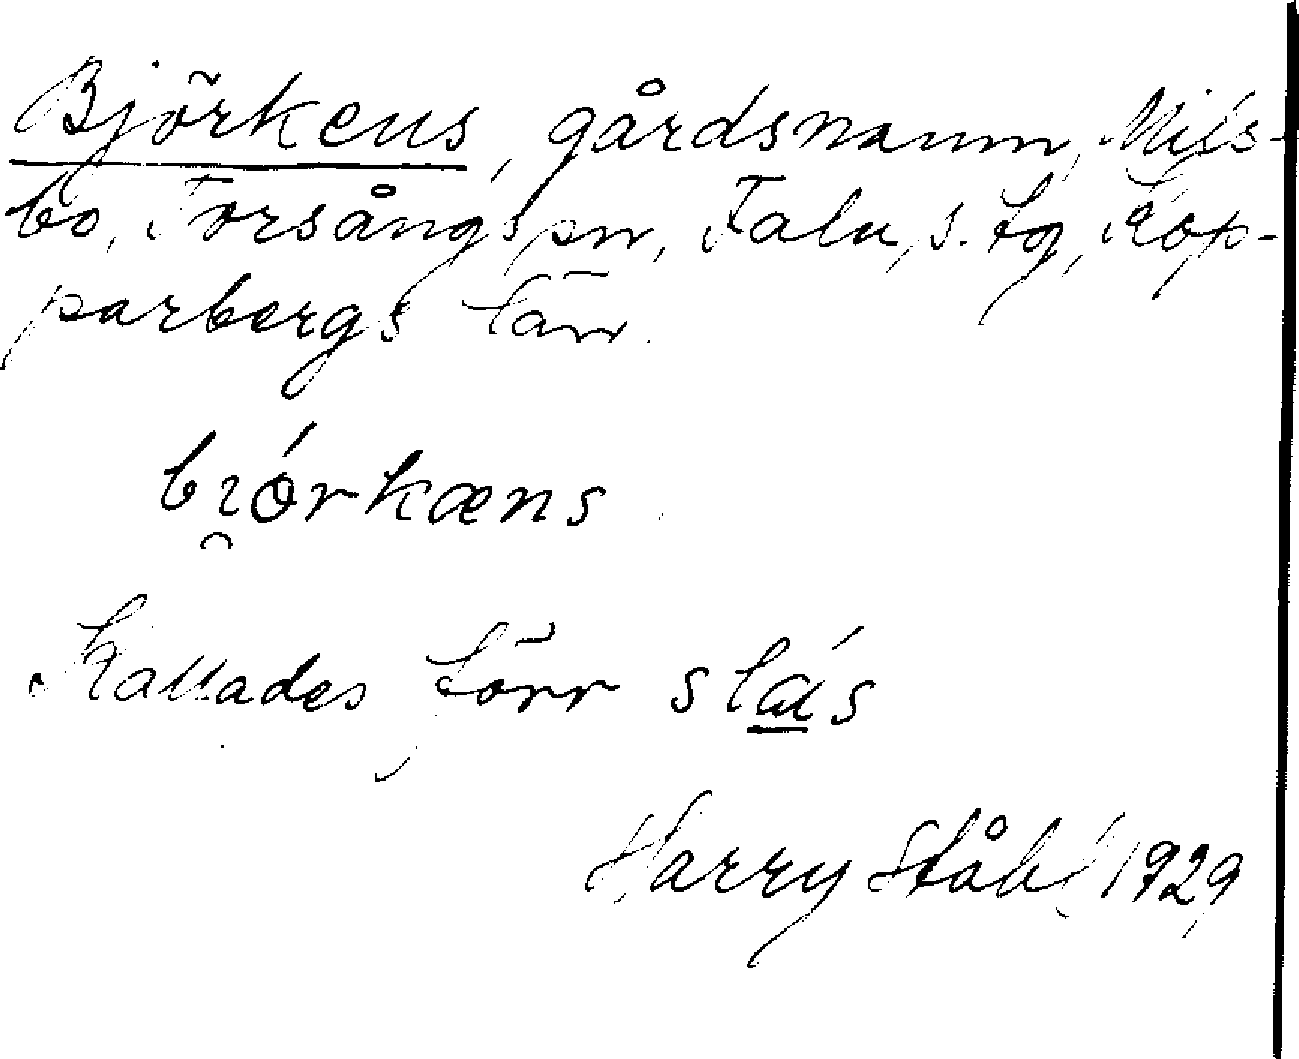 Björkens, gårdsnamn, Mils-
bo, Torsångs sn, Falu s. tg, Kop-
parbergs län.
bi̯órkæns
Kallades förr slás
Harry Ståhl 1929